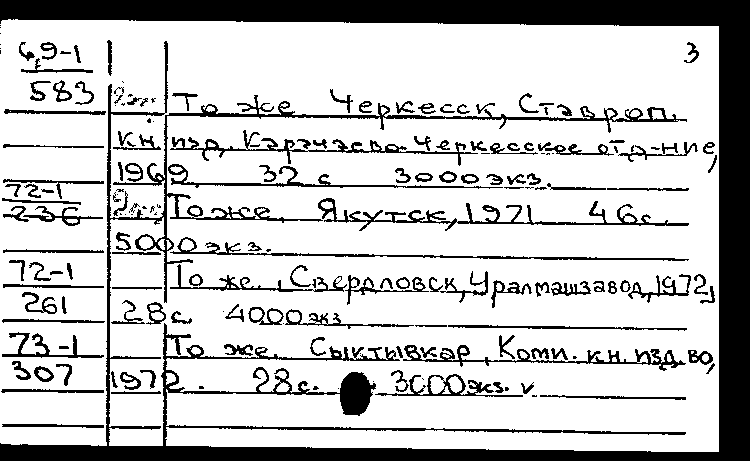 3
69-1
583 То же Черкесск, Ставроп.
кн. изд. Карачаево-Черкесское отд-ние,
1969. 32 с 3000 экз.
72-1
236 То же. Якутск, 1971 46 с.
5000 экз.
72-1 То же., Свердловск, Уралмашзавод, 1972,
261 28 с. 4000 экз.
73-1 То же. Сыктывкар, Коми. кн. изд. во,
307 1972. 28 с. 3000 экз. v